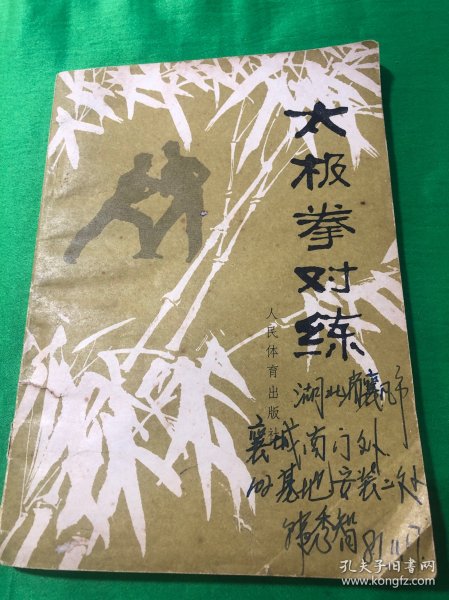 太极拳对练
人民体育出版社
湖北省襄凡市
襄城南门外
基地安装二处
秀智 81.11.17.
孔夫子旧书网
www.kongfz.com